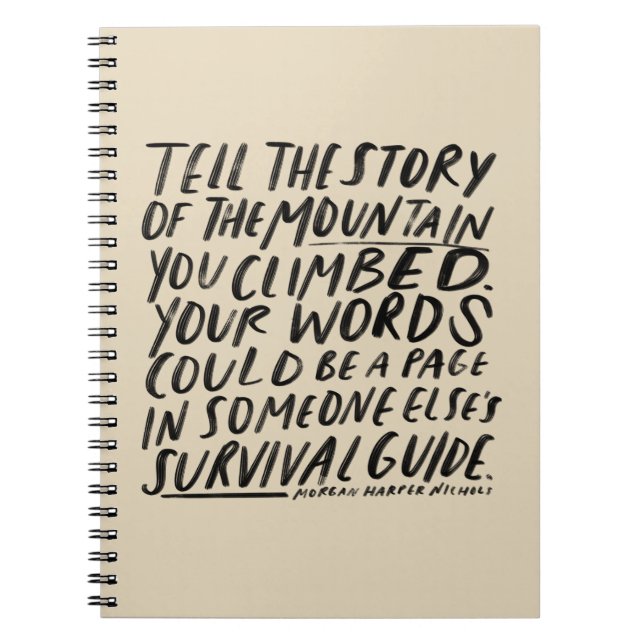 TELL THE STORY
OF THE MOUNTAIN
YOU CLIMBED.
YOUR WORDS
COULD BE A PAGE
IN SOMEONE ELSE'S
SURVIVAL GUIDE.
MORGAN HARPER NICHOLS